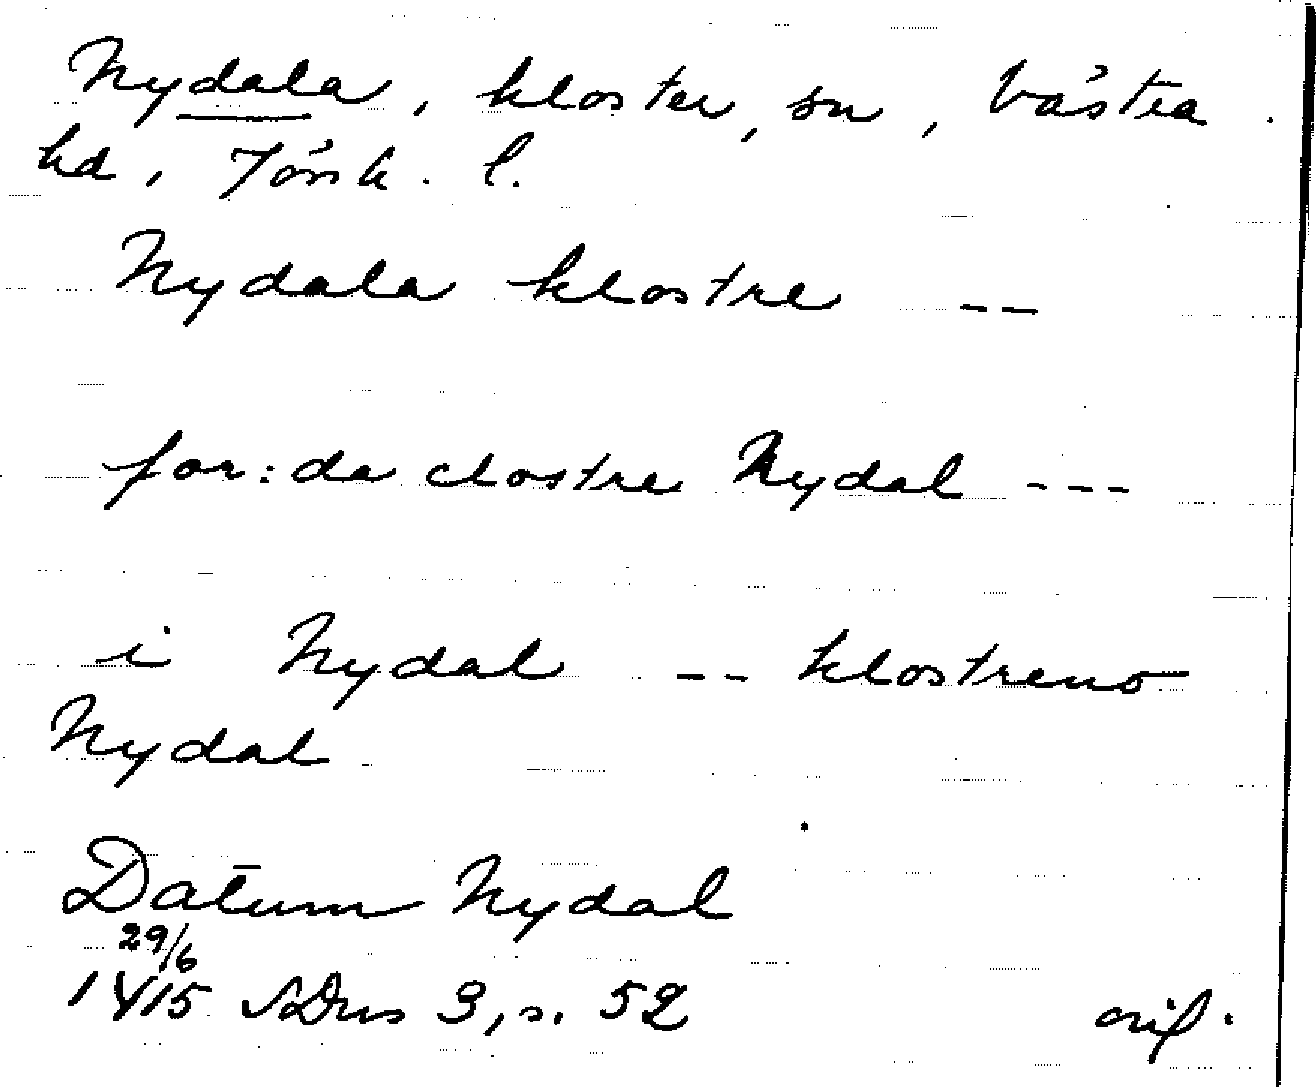 Nydala, kloster, sn, Västra
hd, Jönk. l.
Nydala klostre --
for:da clostre Nydal ---
i Nydal -- klostreno
Nydal
Datum Nydal
29/6
1415 SDns 3, s. 52 orig.